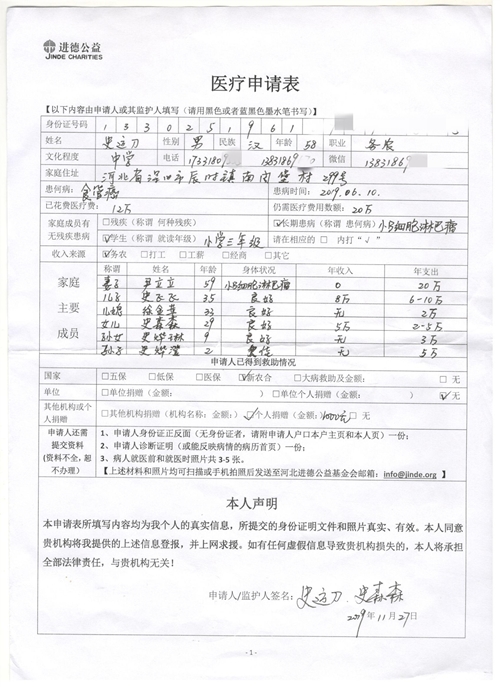 进德公益
JINDE CHARITIES
医疗申请表
【以下内容由申请人或其监护人填写（请用黑色或者蓝黑色墨水笔书写）】
身份证号码 1 3 3 0 2 5 1 9 6 1
姓名 史运刀 性别 男 民族 汉 年龄 58 职业 务农
文化程度 中学 电话 1733180 1383186 微信 13831869
家庭住址 河北省深州市辰时镇南内堡村 299号
患何病： 食管癌 患病时间： 2019.06.10.
已花费医疗费： 12万 仍需医疗费用数额： 20万
家庭成员有无残疾患病 □残疾（称谓 何种残疾） ☑长期患病（称谓 患何病）小B细胞淋巴瘤
☑学生（称谓 就读年级） 小学三年级 请在相应的 □ 内打“√”
收入来源 ☑务农 □打工 □工薪 □经商 □其它
家庭主要成员 称谓 姓名 年龄 身体状况 年收入 年支出
妻子 59 小B细胞淋巴瘤 0 20万
儿子 史飞飞 35 良好 8万 6-10万
儿媳 33 良好 无 2万
女儿 史森森 29 良好 5万 2-5万
孙女 9 良好 无 3万
孙子 2 无 5万
申请人已得到救助情况
国家 □五保 □低保 □医保 ☑新农合 □大病救助及金额： □ 无
单位 □单位捐赠（金额： ） □单位个人捐赠（金额： ） ☑无
其他机构或个人捐赠 □其他机构捐赠（机构名称： 金额： ） ☑个人捐赠（金额：1000元）□ 无
申请人还需提交资料（资料不全，恕不办理）
1、申请人身份证正反面（无身份证者，请附申请人户口本户主页和本人页）一份；
2、申请人诊断证明（或能反映病情的病历首页）一份；
3、病人就医前和就医时照片共 3-5 张。
【上述材料和照片均可扫描或手机拍照后发送至河北进德公益基金会邮箱：info@jinde.org 】
本人声明
本申请表所填写内容均为我个人的真实信息，所提交的身份证明文件和照片真实、有效。本人同意
贵机构将我提供的上述信息登报，并上网求援。如有任何虚假信息导致贵机构损失的，本人将承担
全部法律责任，与贵机构无关！
申请人/监护人签名： 史运刀 史森森
2019年11月27日
- 1 -